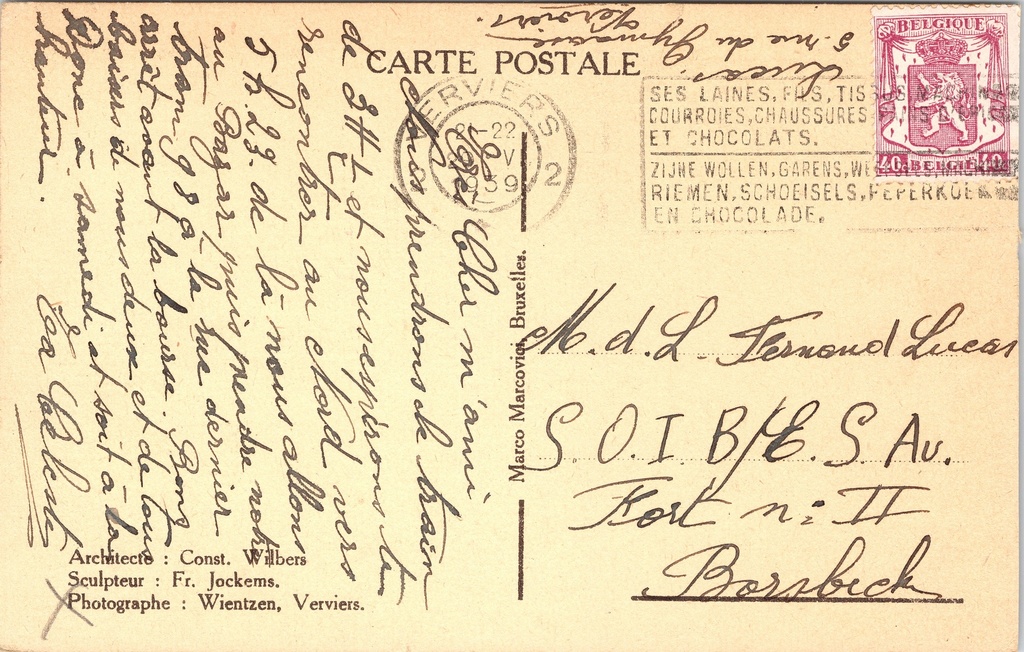 Lucas
5. rue du Gymnase
Verviers.
CARTE POSTALE
BELGIQUE
40 BELGIË 40
VERVIERS
21-22
V
1939
2
SES LAINES, FILS, TISSUS
COURROIES, CHAUSSURES
ET CHOCOLATS.
ZIJNE WOLLEN, GARENS,
RIEMEN, SCHOEISELS, PEPERKOEK
EN CHOCOLADE.
Cher m'ami
Nous prendrons le train
de 3H et nous espérons te
rencontrer au Nord vers
5h 23. de là nous allons
au Bazar, puis prendre notre
tram 98 à la rue dernier
arrêt avant la bourse. Bons
baisers de nous deux et de tous
Donc à samedi et soit à la
hauteur.
Ta Celest
Marco Marcovici, Bruxelles.
M. d. L. Fernand Lucas
S. O. I. B/E. S. Av.
Fort n: II
Borsbeek
Architecte : Const. Wilbers
Sculpteur : Fr. Jockems.
Photographe : Wientzen, Verviers.